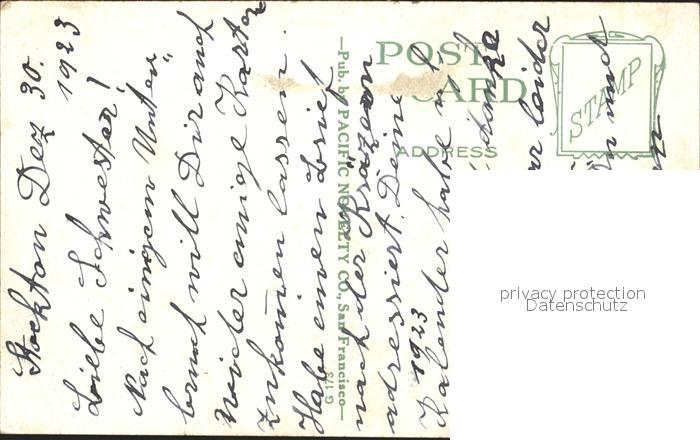 Stockton Dez 30.
1923
Liebe Schwester!
Nach einigem Unter"
bruch will Dir auch
wieder einige Karten
zukommen lassen.
Habe einen Brief
nach der
adressiert. Deine
1923
Kalender habe ich
danke
leider
und
POST CARD
ADDRESS
STAMP
—Pub. by PACIFIC NOVELTY CO., San Francisco—
G 173
privacy protection
Datenschutz